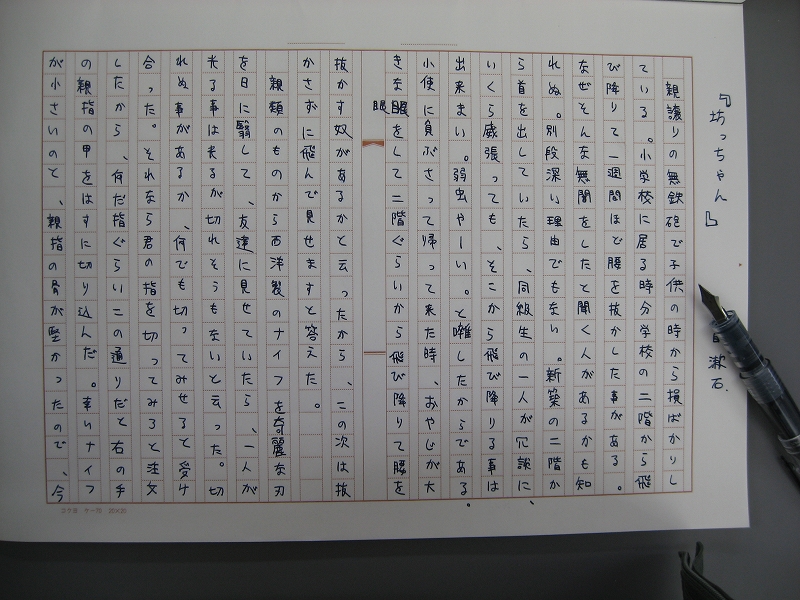 『坊っちゃん』
漱石.
親譲りの無鉄砲で子供の時から損ばかりし
ている。小学校に居る時分学校の二階から飛
び降りて一週間ほど腰を抜かした事がある。
なぜそんな無闇をしたと聞く人があるかも知
れぬ。別段深い理由でもない。新築の二階か
ら首を出していたら、同級生の一人が冗談に、
いくら威張っても、そこから飛び降りる事は
出来まい。弱虫やーい。と囃したからである。
小使に負ぶさって帰って来た時、おやじが大
きな眼をして二階ぐらいから飛び降りて腰を
眼
抜かす奴があるかと云ったから、この次は抜
かさずに飛んで見せますと答えた。
親類のものから西洋製のナイフを奇麗な刃
を日に翳して、友達に見せていたら、一人が
光る事は光るが切れそうもないと云った。切
れぬ事があるか、何でも切ってみせると受け
合った。それなら君の指を切ってみろと注文
したから、何だ指ぐらいこの通りだと右の手
の親指の甲をはすに切り込んだ。幸いナイフ
が小さいのと、親指の骨が堅かったので、今